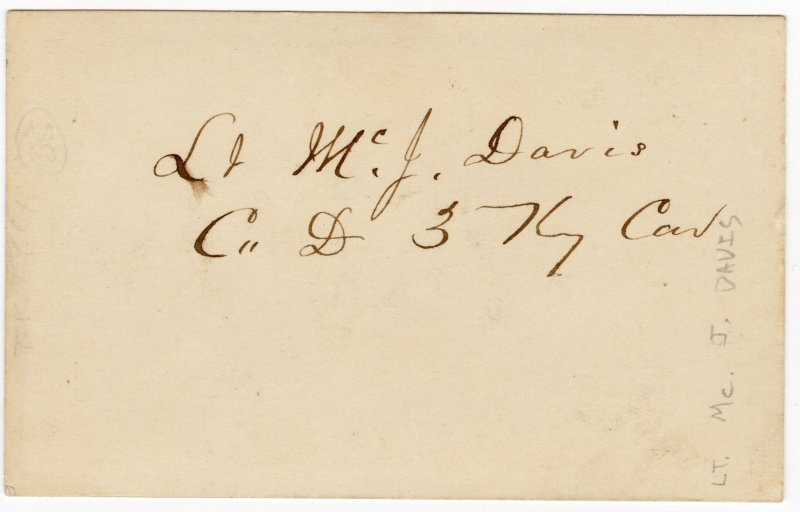 Lt Mc. J. Davis
Co D 3 Ky Cav
LT. Mc. J. DAVIS